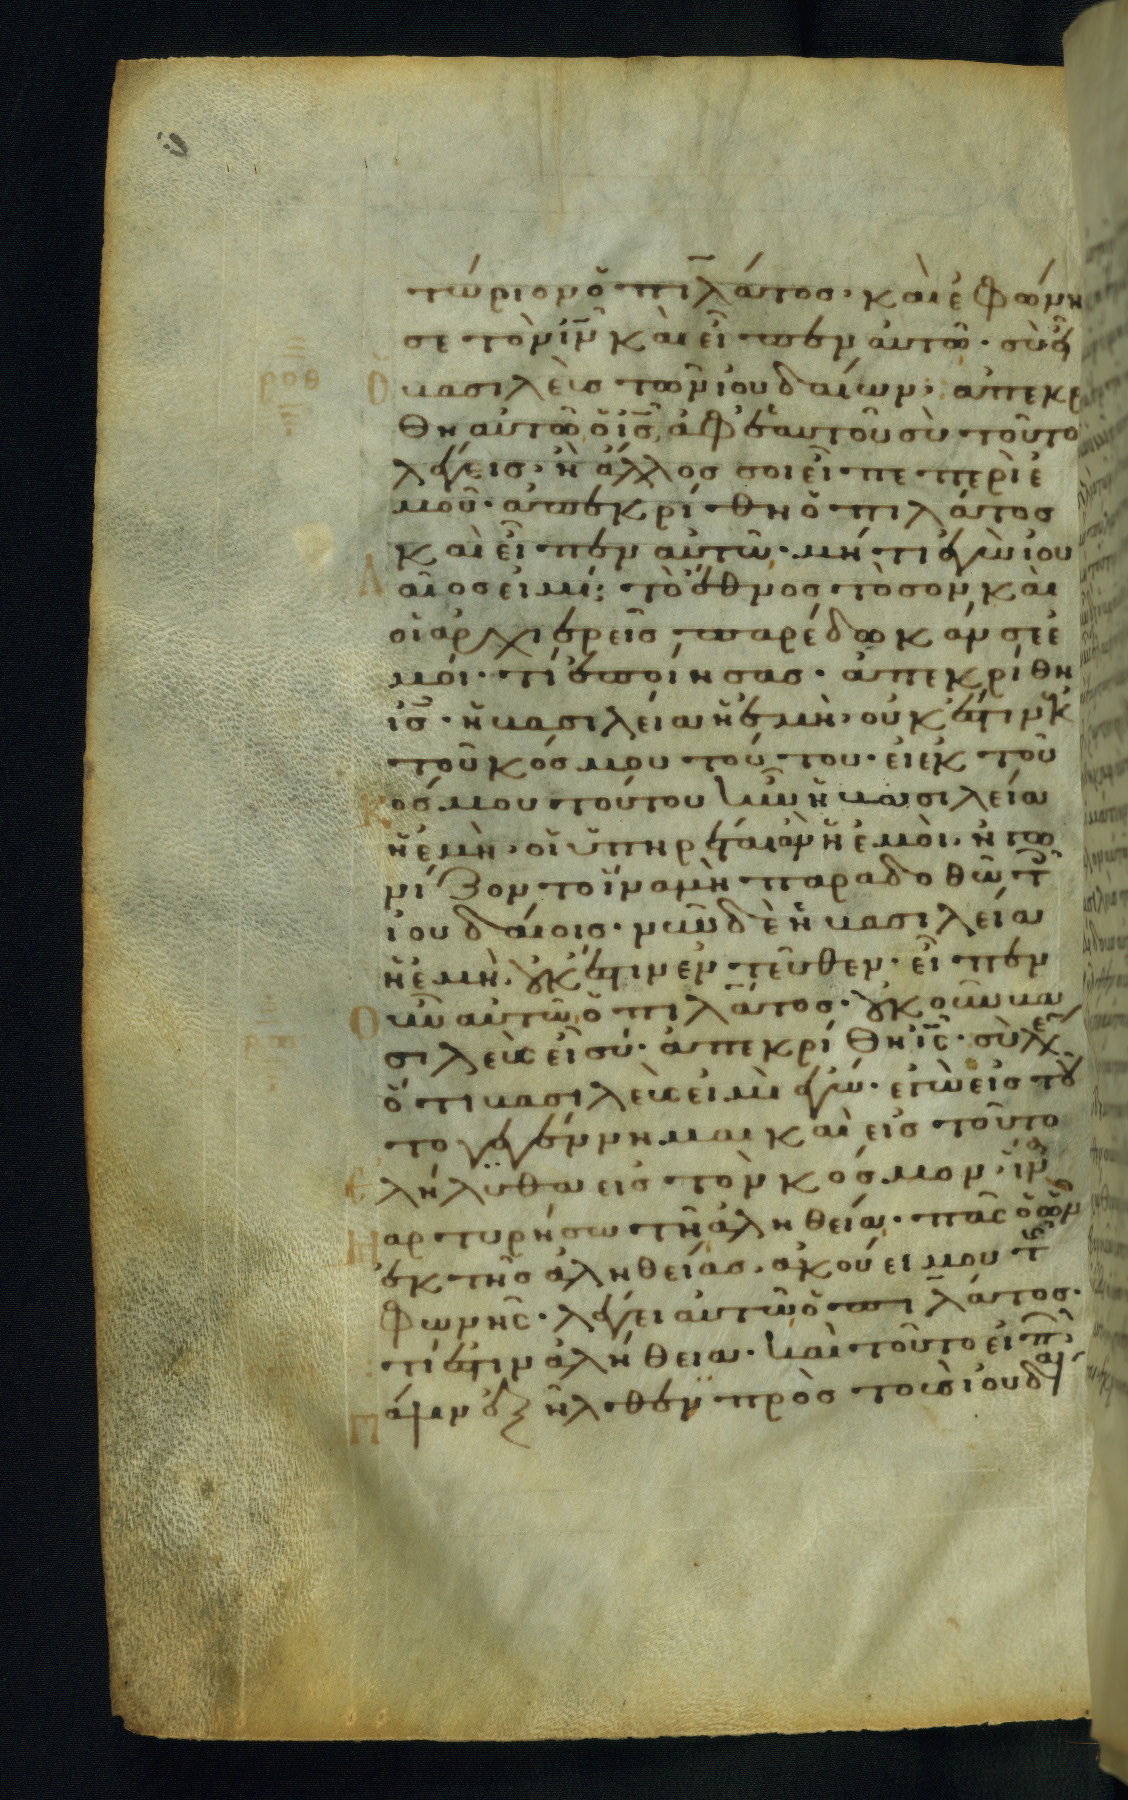 τώριον ὁ πιλάτος· καὶ ἐφώνη
σε τὸν ιν καὶ εἶπεν αυτῶ· σὺ εἶ
ὁ βασιλεὺς τῶν ιουδαίων· ἀπεκρ
θη αυτῶ ὁ ις ἀφ εαυτοῦ σὺ τοῦτο
λέγεις· ἢ ἄλλος σοι εἶπε περὶ ἐ
μοῦ· ἀπεκρίθη ὁ πιλάτος
καὶ εἶπεν αυτῶ· μήτι εγὼ ιου
δαῖος εἰμί; τὸ ἔθνος τὸ σον καὶ
οἱ αρχιερεῖς παρέδωκάν σε ἐ
μοί· τί εποίησας· ἀπεκρίθη
ις· ἡ βασιλεία ἡ εμὴ· ουκ έστιν ἐκ
τοῦ κόσμου τούτου· εἰ ἐκ τοῦ
κόσμου τούτου ἦν ἡ βασιλεία
ἡ ἐμὴ· οἱ ὑπηρέται ἂν ἡ ἐμοὶ· ἠγω
νίζοντο ἵνα μὴ παραδοθῶ τοῖς
ιουδαίοις· νῦν δὲ ἡ βασιλεία
ἡ ἐμὴ· ουκ έστιν εντεῦθεν· εἶπεν
οῦν αυτῶ ὁ πιλάτος· ουκοῦν βα
σιλεὺς εἶ σύ· ἀπεκρίθη ις· σὺ λέγεις
ὅτι βασιλεὺς εἰμὶ εγώ· εγὼ εἰς τοῦ
το γεγέννημαι καὶ εἰς τοῦτο
ἐλήλυθα εἰς τὸν κόσμον· ἵνα
μαρτυρήσω τῆ ἀληθεία· πᾶς ὁ ὢν
ἐκ τῆς ἀληθείας· ἀκούει μου τῆς
φωνῆς· λέγει αυτῶ ὁ πιλάτος·
τί εστιν ἀλήθεια· καὶ τοῦτο εἰπὼν
πάλιν ἐξῆλθεν πρὸς τοὺς ιουδαί